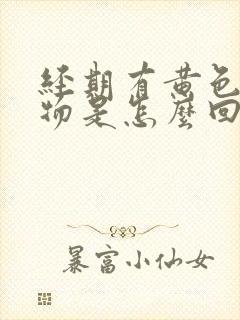 經期有黄色
物是怎麼回
暴富小仙女